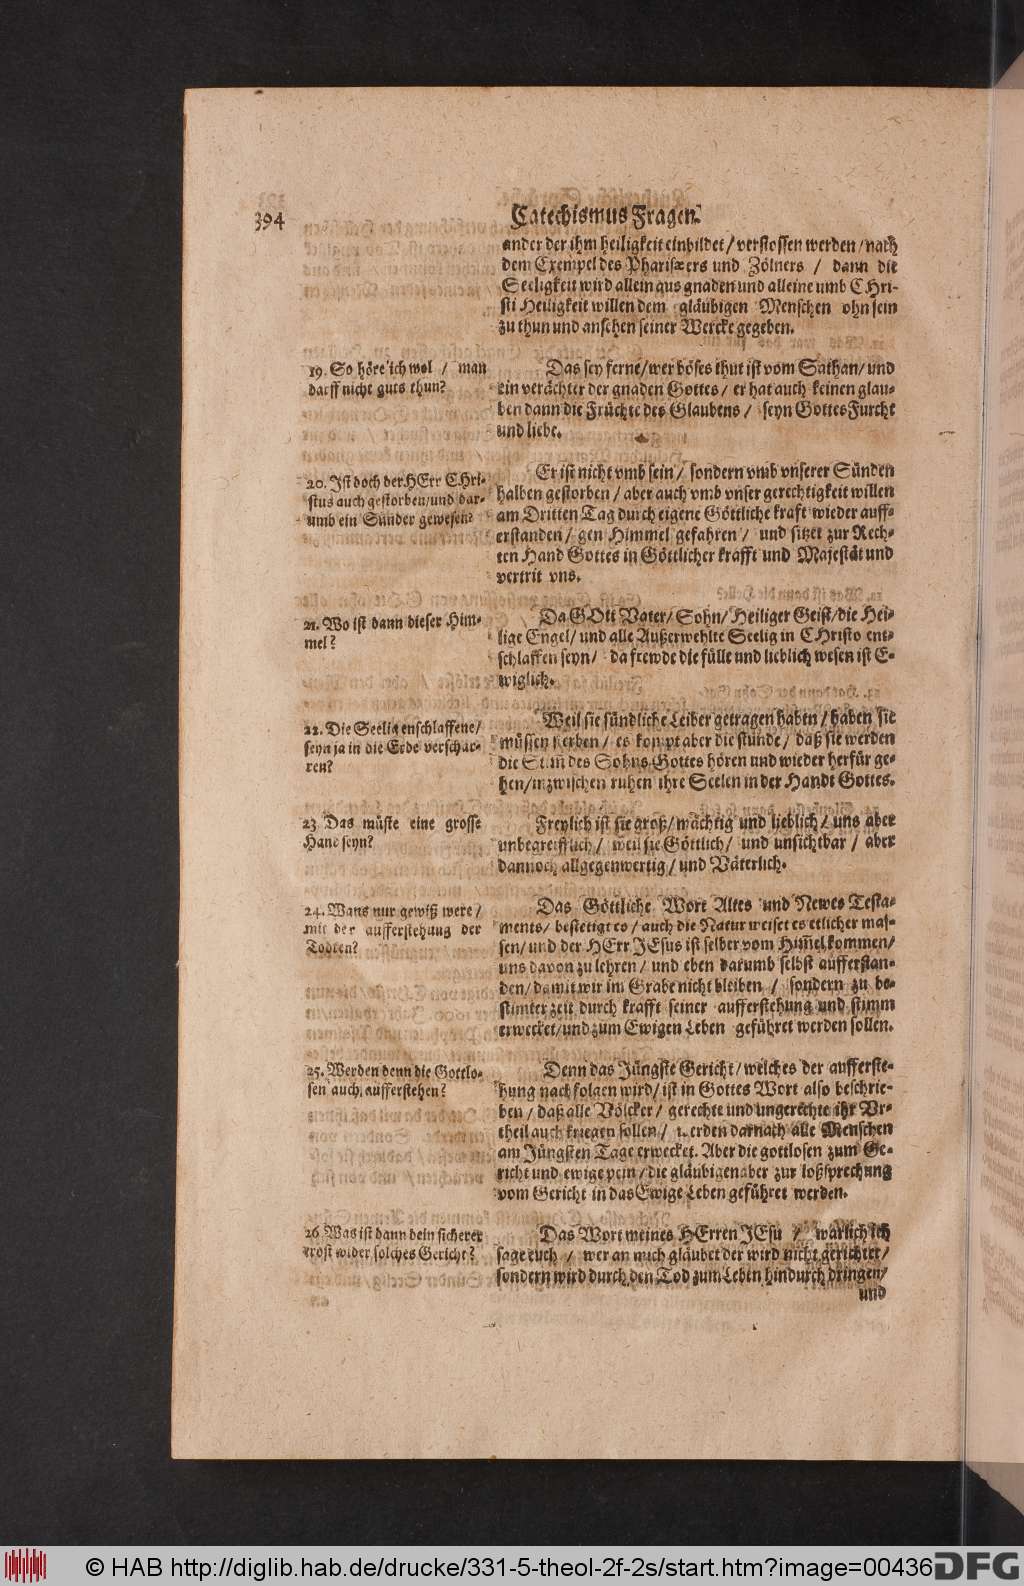 394
Catechismus Fragen.
ander der ihm heiligkeit einbildet / verstossen werden / nach
dem Exempel des Pharisæers und Zölners / dann die
Seeligkeit wird allein aus gnaden und alleine umb CHri-
sti Heiligkeit willen dem gläubigen Menschen ohn sein
zu thun und ansehen seiner Wercke gegeben.
19. So höre ich wol / man
darff nicht guts thun?
Das sey ferne / wer böses thut ist vom Sathan / und
ein verächter der gnaden Gottes / er hat auch keinen glau-
ben dann die Früchte des Glaubens / seyn Gottes Furcht
und liebe.
20. Ist doch der HErr CHri-
stus auch gestorben / und dar-
umb ein Sünder gewesen?
Er ist nicht vmb sein / sondern vmb vnserer Sünden
halben gestorben / aber auch vmb vnser gerechtigkeit willen
am Dritten Tag durch eigene Göttliche kraft wieder auff-
erstanden / gen Himmel gefahren / und sitzet zur Rech-
ten Hand Gottes in Göttlicher krafft und Majestät und
vertrit vns.
21. Wo ist dann dieser Him-
mel?
Da GOtt Vater / Sohn / Heiliger Geist / die Hei-
lige Engel / und alle Außerwehlte Seelig in CHristo ent-
schlaffen seyn / da frewde die fülle und lieblich wesen ist E-
wiglich.
22. Die Seelig enschlaffene /
seyn ja in die Erde verschar-
ren?
Weil sie sündliche Leiber getragen haben / haben sie
müssen sterben / es kompt aber die stunde / daß sie werden
die Stim̃ des Sohns Gottes hören und wieder herfür ge-
hen / inzwischen ruhen ihre Seelen in der Handt Gottes.
23 Das müste eine grosse
Hand seyn?
Freylich ist sie groß / mächtig und lieblich / uns aber
unbegreifflich / weil sie Göttlich / und unsichtbar / aber
dannoch allgegenwertig / und Väterlich.
24. Wans nur gewiß were /
mit der aufferstehung der
Todten?
Das Göttliche Wort Altes und Newes Testa-
ments / bestetigt es / auch die Natur weiset es etlicher mas-
sen / und der HErr JEsus ist selber vom Him̃el kommen /
uns davon zu lehren / und eben darumb selbst aufferstan-
den / damit wir im Grabe nicht bleiben / sondern zu be-
stimter zeit durch krafft seiner aufferstehung und stimm
erwecket / und zum Ewigen Leben geführet werden sollen.
25. Werden denn die Gottlo-
sen auch aufferstehen?
Denn das Jüngste Gericht / welches der aufferste-
hung nachfolgen wird / ist in Gottes Wort also beschrie-
ben / daß alle Völcker / gerechte und ungerechte ihr Vr-
theil auch kriegen sollen / werden darnach alle Menschen
am Jüngsten Tage erwecket. Aber die gottlosen zum Ge-
richt und ewige pein / die gläubigen aber zur loßsprechung
vom Gericht in das Ewige Leben geführet werden.
26 Was ist dann dein sicherer
trost wider solches Gericht?
Das Wort meines HErren JEsu / warlich ich
sage euch / wer an mich gläubet der wird nicht gerichtet /
sondern wird durch den Tod zum Leben hindurch dringen /
und
© HAB http://diglib.hab.de/drucke/331-5-theol-2f-2s/start.htm?image=00436
DFG